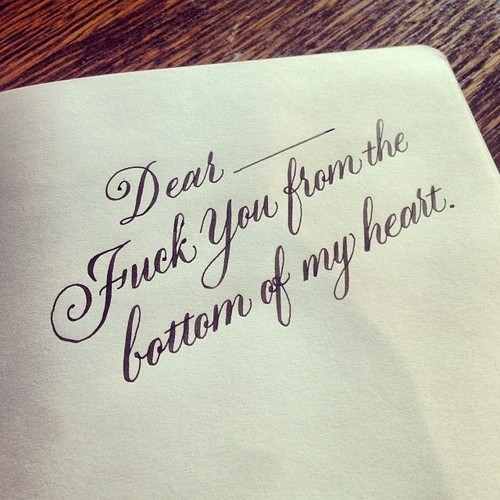 Dear ______
Fuck You from the
bottom of my heart.